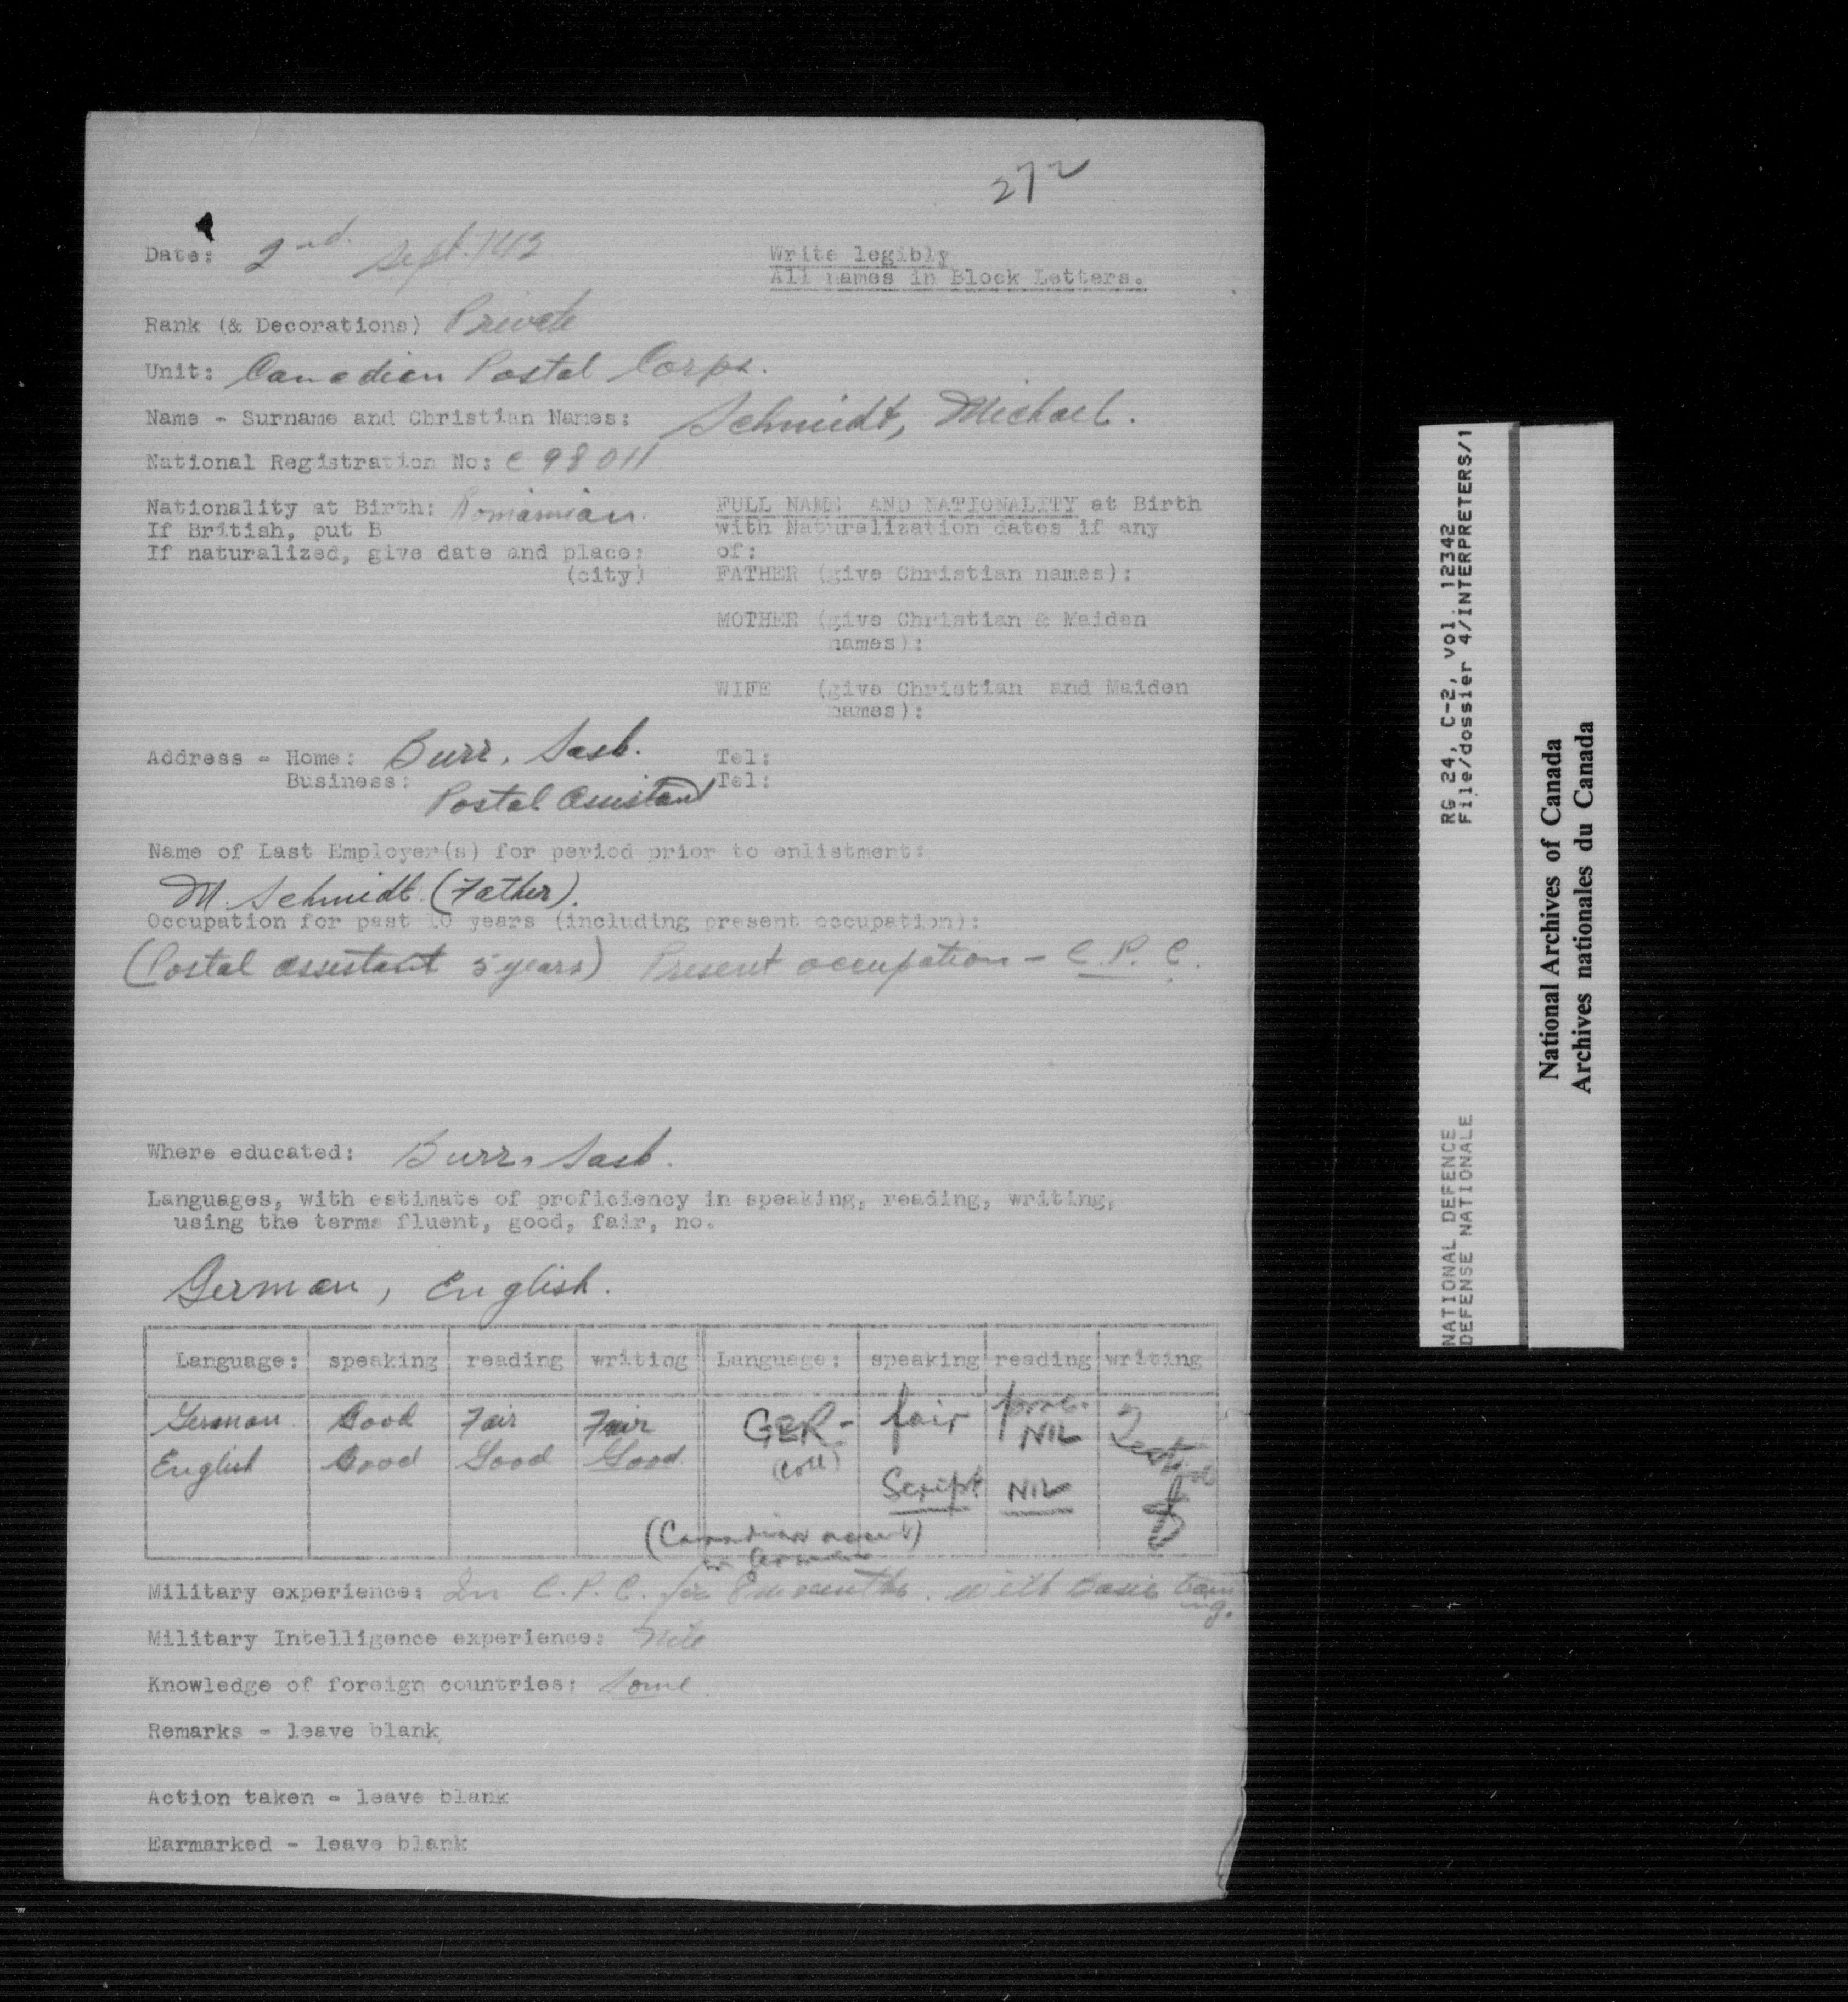 272
Date: 2nd. Sept. /42
Write legibly
All names in Block Letters.
Rank (& Decorations) Private
Unit: Canadian Postal Corps.
Name - Surname and Christian Names: Schmidt, Michael.
National Registration No: C 98011
Nationality at Birth: Romanian.
If British, put B
If naturalized, give date and place:
(city)
FULL NAME AND NATIONALITY at Birth
with Naturalization dates if any
of:
FATHER (give Christian names):
MOTHER (give Christian & Maiden
names):
WIFE (give Christian and Maiden
names):
Address - Home: Burr, Sask. Tel:
Business: Postal Assistant Tel:
Name of Last Employer(s) for period prior to enlistment:
M. Schmidt (Father).
Occupation for past 10 years (including present occupation):
(Postal assistant 5 years) Present occupation - C.P.C.
Where educated: Burr, Sask.
Languages, with estimate of proficiency in speaking, reading, writing,
using the terms fluent, good, fair, no.
German, English.
Language: speaking reading writing Language: speaking reading writing
German. Good Fair Fair GER- fair NIL
English Good Good Good (coll) Script NIL
(Canadian accent)
in German
Military experience: In C.P.C. for 8 months. with Basic training.
Military Intelligence experience: Nil
Knowledge of foreign countries: Some.
Remarks - leave blank
Action taken - leave blank
Earmarked - leave blank
NATIONAL DEFENCE RG 24, C-2, vol. 12342
DEFENSE NATIONALE File/dossier 4/INTERPRETERS/1
National Archives of Canada
Archives nationales du Canada